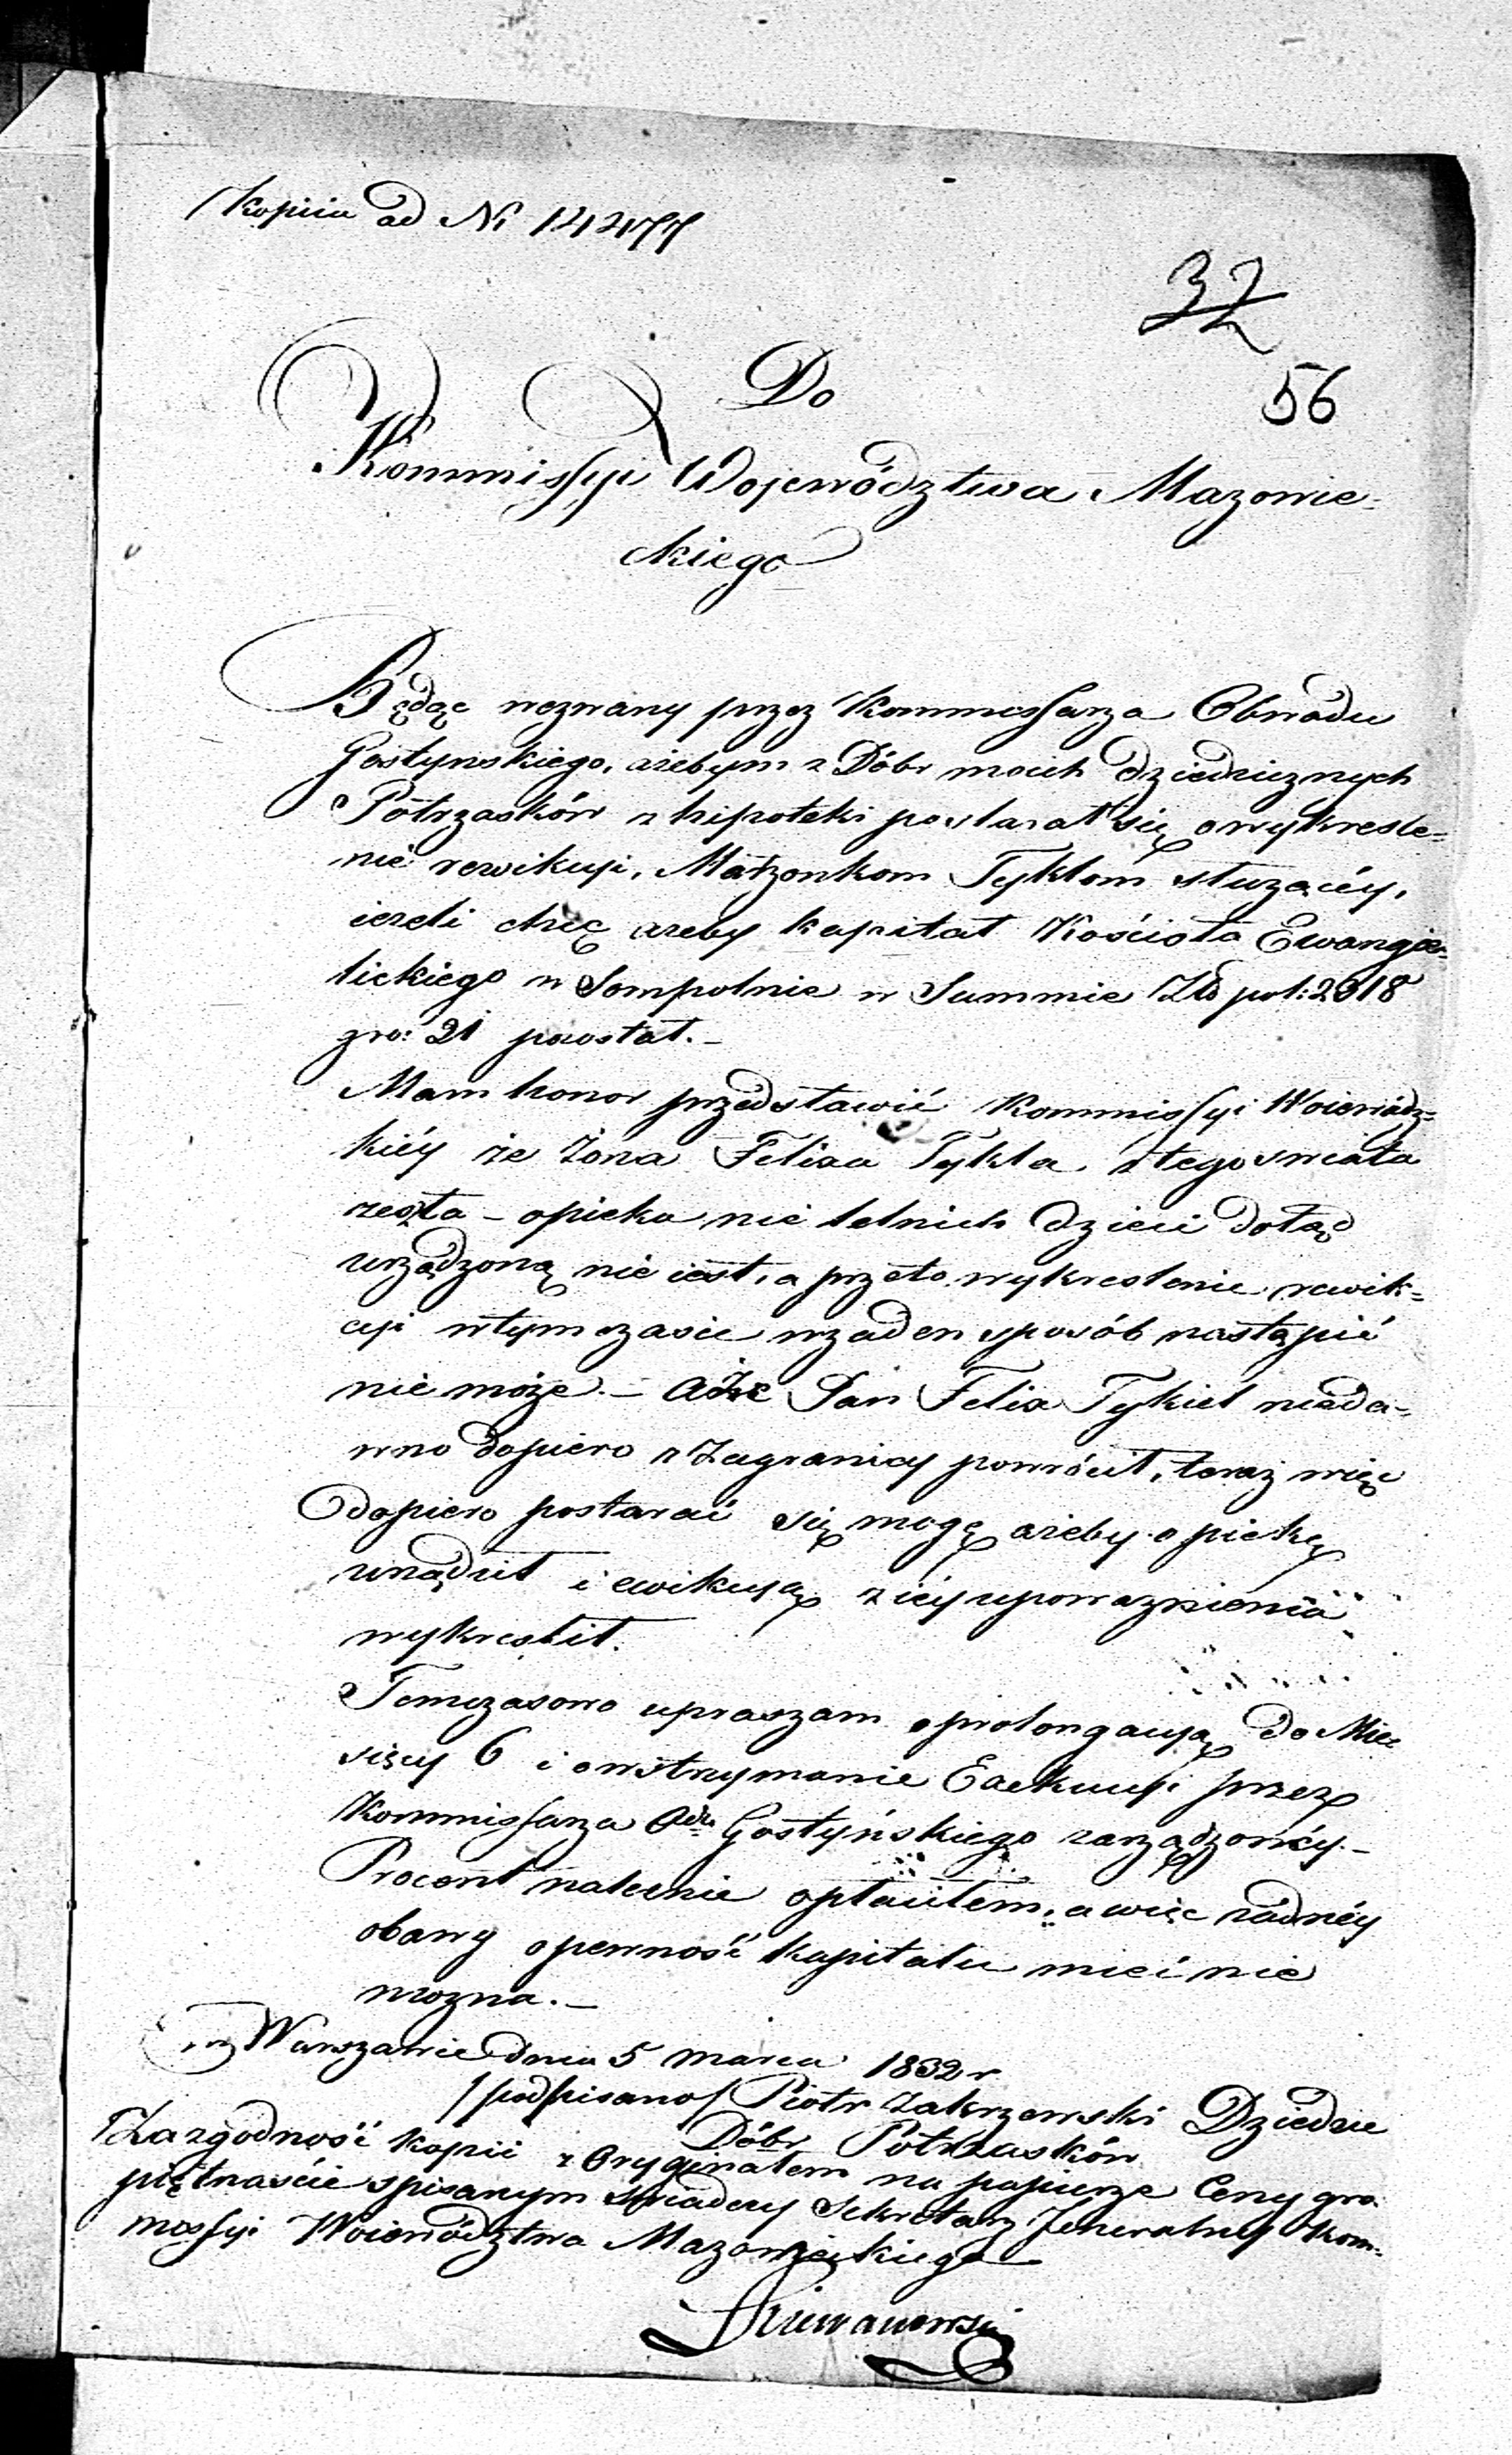 Kopiia ad N° 142477
32
56
Do
Kommissyi Województwa Mazowie-
ckiego
Będąc wezwany przez Kommissarza Obwodu
Gostynskiego, ażebym z Dóbr moich dziedzicznych
Potrzasków z hipoteki postarał się o wykreśle-
nie rewikcyi, Małżonkom Tyklom służącéy,
ieżeli chcę ażeby kapitał Kościoła Ewangie-
lickiego w Sompolnie w Summie Złp pol: 2618
gro: 21 pozostał.-
Mam honor przedstawić Kommissyi Woiewódz-
kiéy że Żona Felixa Tykla z tego świata
zeszła - opieka nieletnich dzieci dotąd
urządzoną nie iest, a przeto wykreślenie rewik-
cyi w tym czasie w żaden sposób nastąpić
nie może.- A że Pan Felix Tykiel nieda-
wno dopiero z Zagranicy powrócił, teraz więc
dopiero postarać się mogę ażeby opiekę
urządził i ewikcyą z iéy upoważnienia
wykreślił.
Temczasowo upraszam o prolongacyą do Mie
sięcy 6 i o wstrzymanie Exekucyi przez
Kommissarza Odu Gostyńskiego zarządzonéy.-
Procent należnie opłaciłem, a więc żádnéy
obawy o pewność kapitału mieć nie
można.-
w Warszawie dnia 5 marca 1832 r
/podpisano/ Piotr Zakrzewski Dziedzic
Dóbr Potrzasków
Za zgodność kopii z Oryginałem na papierze Ceny gro.
piętnaście spisanym świadczy Sekretarz Jeneralny Kom-
missyi Woiewództwa Mazowieckiego